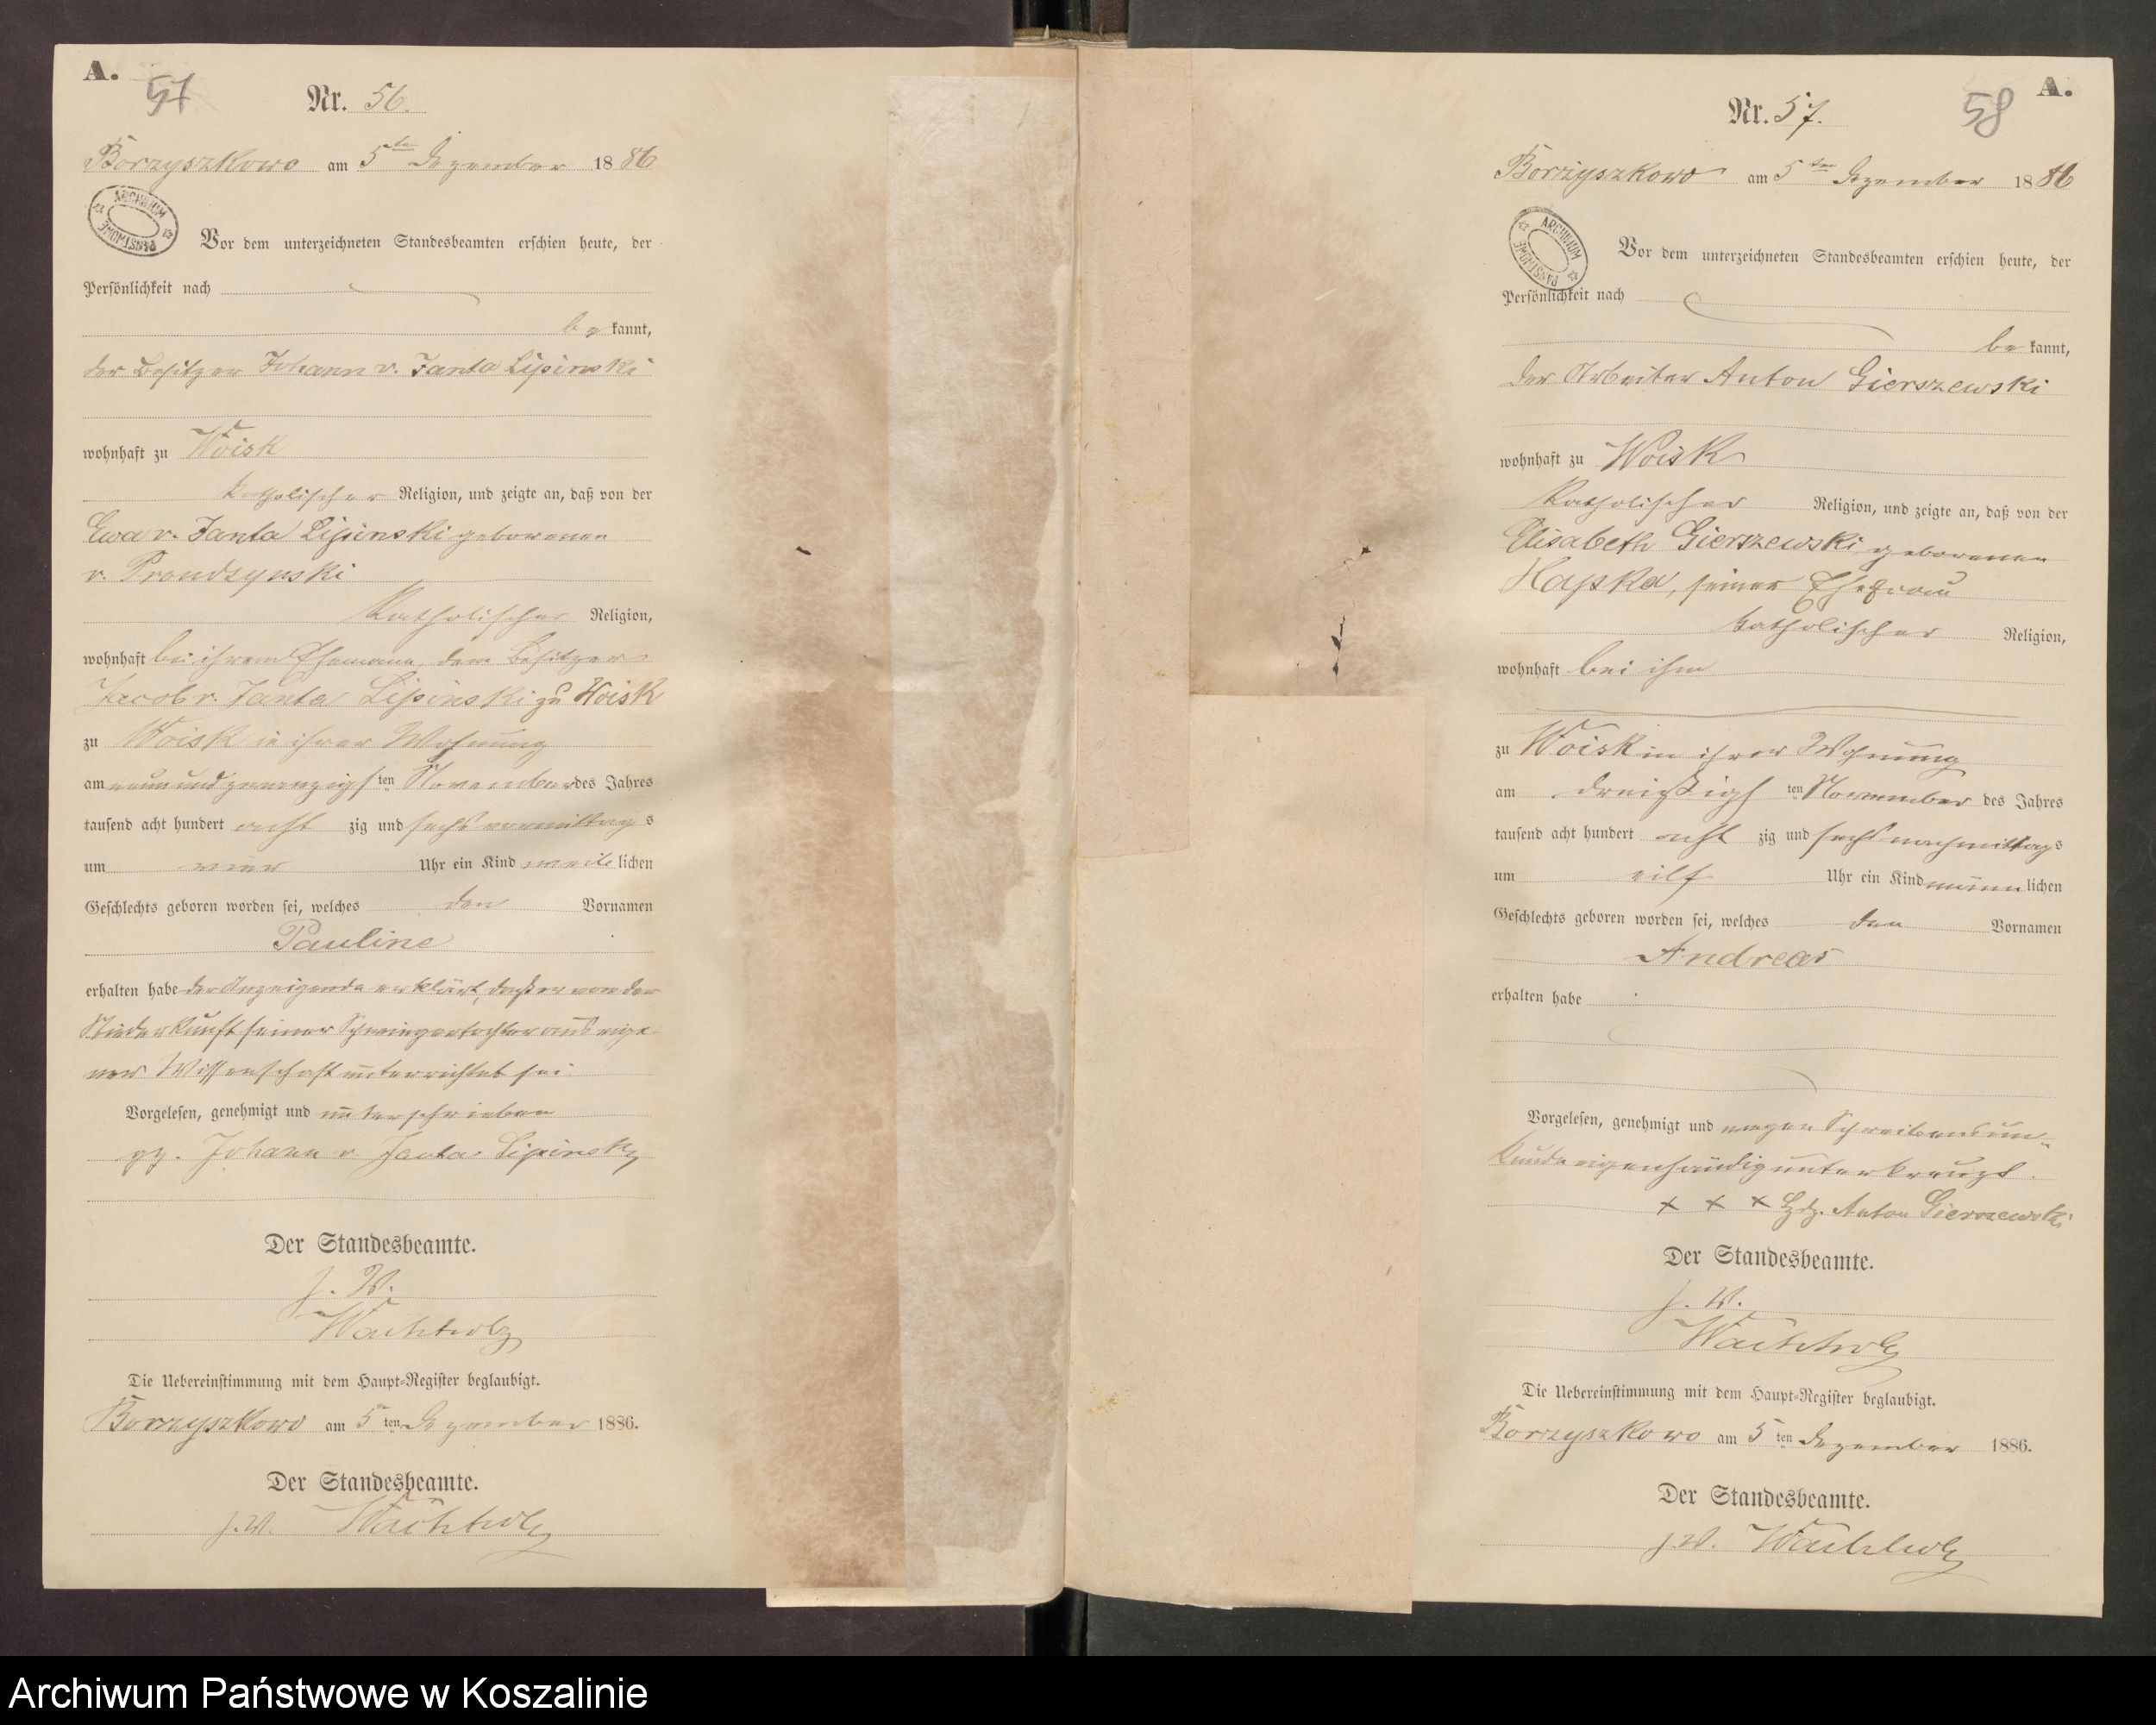 A.
57
Nr. 56.
Borzyszkowo am 5ten Dezember 1886
ARCHIWUM PAŃSTWOWE
Vor dem unterzeichneten Standesbeamten erschien heute, der
Persönlichkeit nach
bekannt,
der Besitzer Johann v. Janta Lipinski
wohnhaft zu Woisk
katholischer Religion, und zeigte an, daß von der
Ewa v. Janta Lipinski geborenen
v. Prondsynski
katholischer Religion,
wohnhaft bei ihrem Ehemann, dem Besitzer
Jacob v. Janta Lipinski zu Woisk
zu Woisk in ihrer Wohnung
am neunundzwanzigsten November des Jahres
tausend acht hundert achtzig und sechs vormittags
um vier Uhr ein Kind weiblichen
Geschlechts geboren worden sei, welches den Vornamen
Pauline
erhalten habe der Anzeigende erklärt, daß er von der
Niederkunft seiner Schwiegertochter aus eige-
ner Wissenschaft unterrichtet sei.
Vorgelesen, genehmigt und unterschrieben
gz. Johann v. Janta Lipinsky
Der Standesbeamte.
J. V.
Wachholz
Die Uebereinstimmung mit dem Haupt-Register beglaubigt.
Borzyszkowo am 5ten Dezember 1886.
Der Standesbeamte.
J. V. Wachholz
A.
58
Nr. 57.
Borzyszkowo am 5ten Dezember 1886
ARCHIWUM PAŃSTWOWE
Vor dem unterzeichneten Standesbeamten erschien heute, der
Persönlichkeit nach
bekannt,
der Arbeiter Anton Gierszewski
wohnhaft zu Woisk
katholischer Religion, und zeigte an, daß von der
Elisabeth Gierszewski, geborenen
Hapka, seiner Ehefrau
katholischer Religion,
wohnhaft bei ihm
zu Woisk in ihrer Wohnung
am dreißigsten November des Jahres
tausend acht hundert achtzig und sechs nachmittags
um eilf Uhr ein Kind männlichen
Geschlechts geboren worden sei, welches den Vornamen
Andreas
erhalten habe
Vorgelesen, genehmigt und wegen Schreibensun-
kunde eigenhändig unterkreuzt.
x x x Hdz. Anton Gierszewski
Der Standesbeamte.
J. V.
Wachholz
Die Uebereinstimmung mit dem Haupt-Register beglaubigt.
Borzyszkowo am 5ten Dezember 1886.
Der Standesbeamte.
J. V. Wachholz
Archiwum Państwowe w Koszalinie